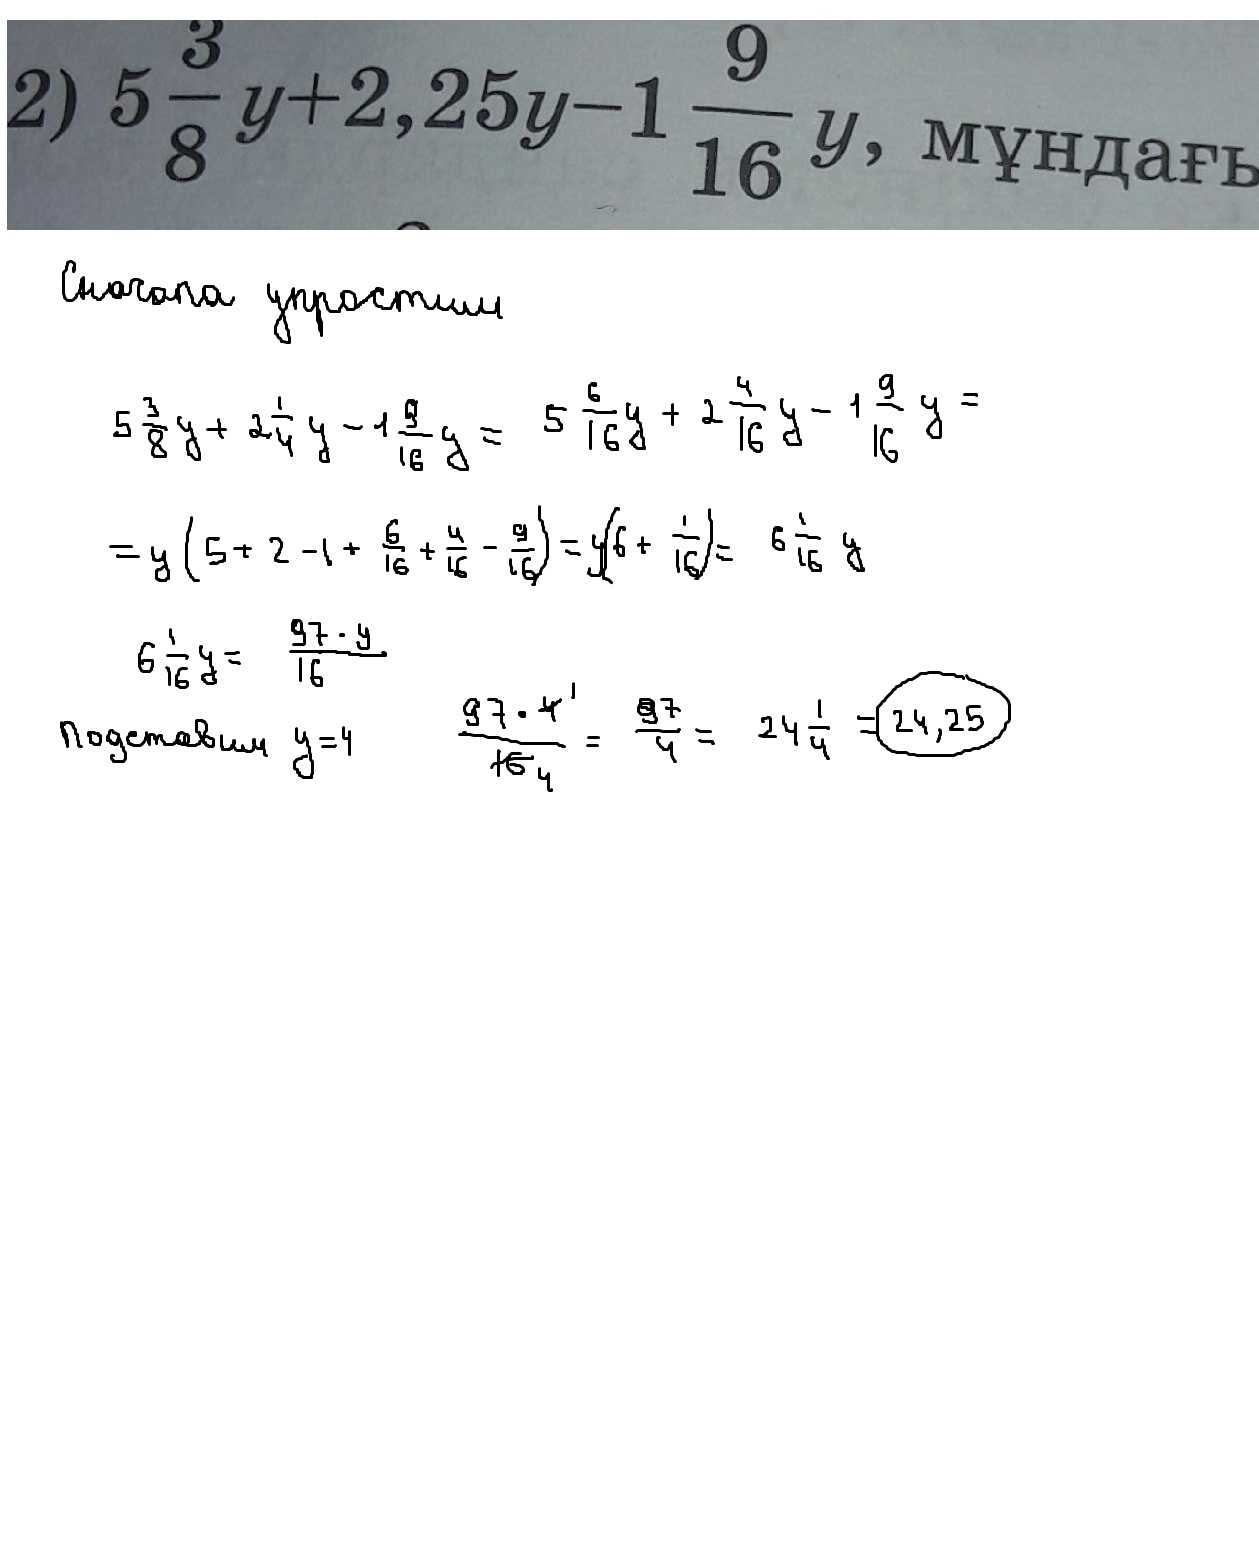 2) 5 3/8 y+2,25y−1 9/16 y, мұндағы
Сначала упростим
5 3/8 y + 2 1/4 y − 1 9/16 y = 5 6/16 y + 2 4/16 y − 1 9/16 y =
= y (5 + 2 − 1 + 6/16 + 4/16 − 9/16) = y(6 + 1/16) = 6 1/16 y
6 1/16 y = 97 · y/16
Подставим y=4 97 · 4 1/16 4 = 97/4 = 24 1/4 = 24,25